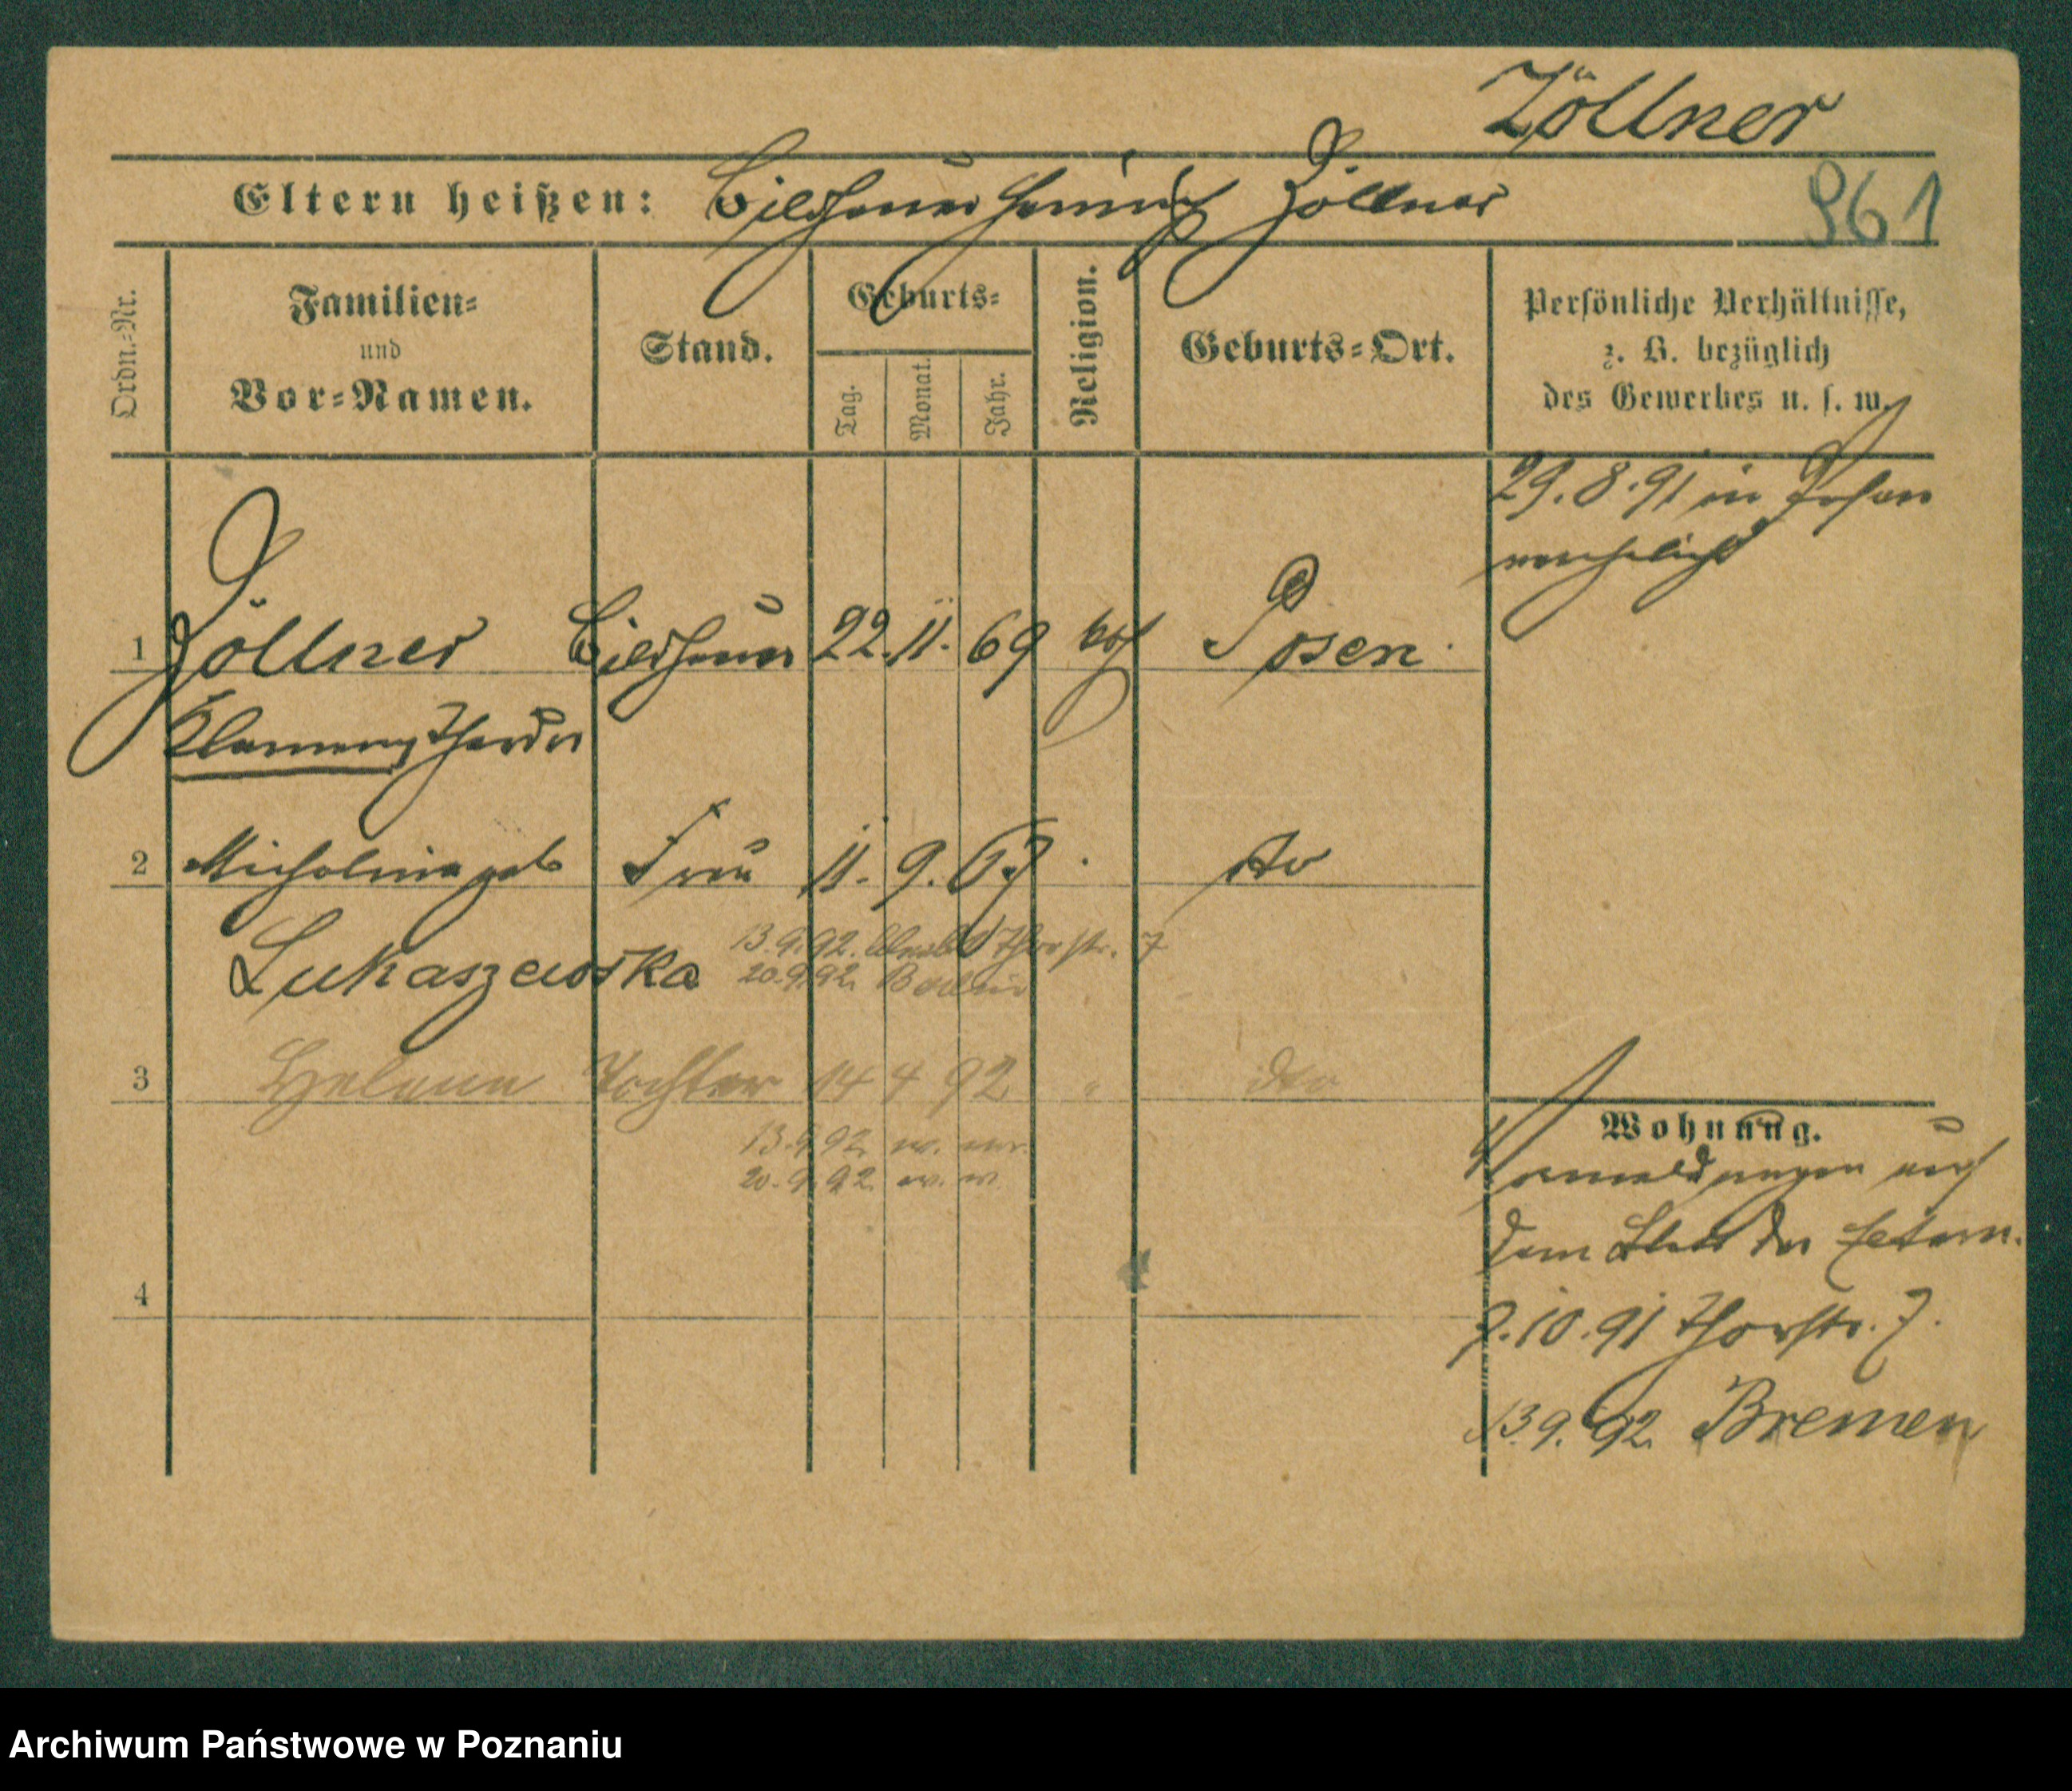 Zöllner
Eltern heißen: Bildhauer Heinrich Zöllner
961
Ordn.-Nr.
Familien-
und
Vor-Namen.
Stand.
Geburts-
Tag.
Monat.
Jahr.
Religion.
Geburts-Ort.
Persönliche Verhältnisse,
z. B. bezüglich
des Gewerbes u. s. w.
29.8.91 in Posen
verehelicht
1 Zöllner Bildhauer 22. 11. 69 kath Posen.
Clemens Theodor
2 Michalina geb Frau 11. 9. 67 dto
Lukaszewska
13.9.92. Thorstr. 7
20.9.92. Berlin
3 Helena Tochter 14 4 92 " dto
13.9.92
20.9.92
4
Wohnung.
Vormeldungen auf
dem Blatt der Eltern.
7.10.91 Thorstr. 7.
13.9.92 Bremen
Archiwum Państwowe w Poznaniu